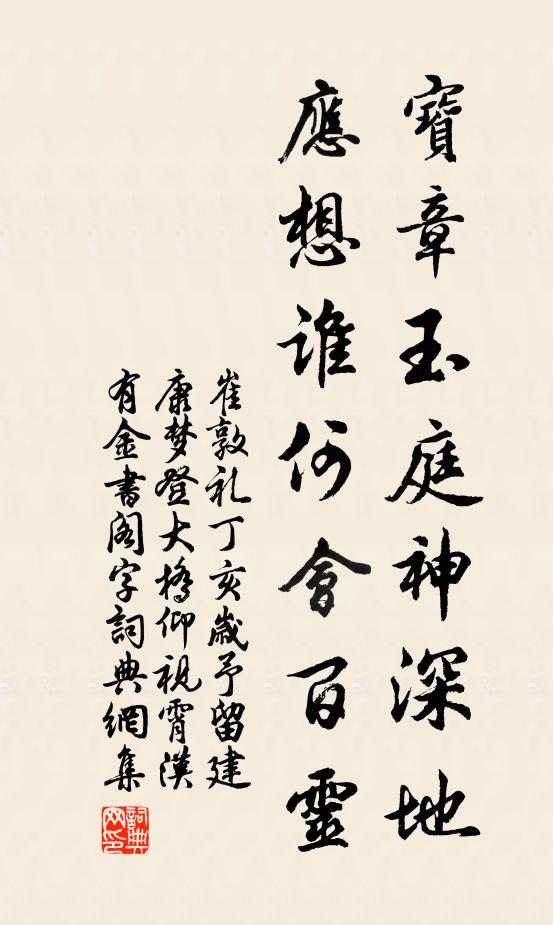 寶章玉庭神深地
應想誰何會百靈
崔敦礼丁亥歳予留建
康梦登大橋仰視霄漢
有金書阁字詞典網集
詞典
网印